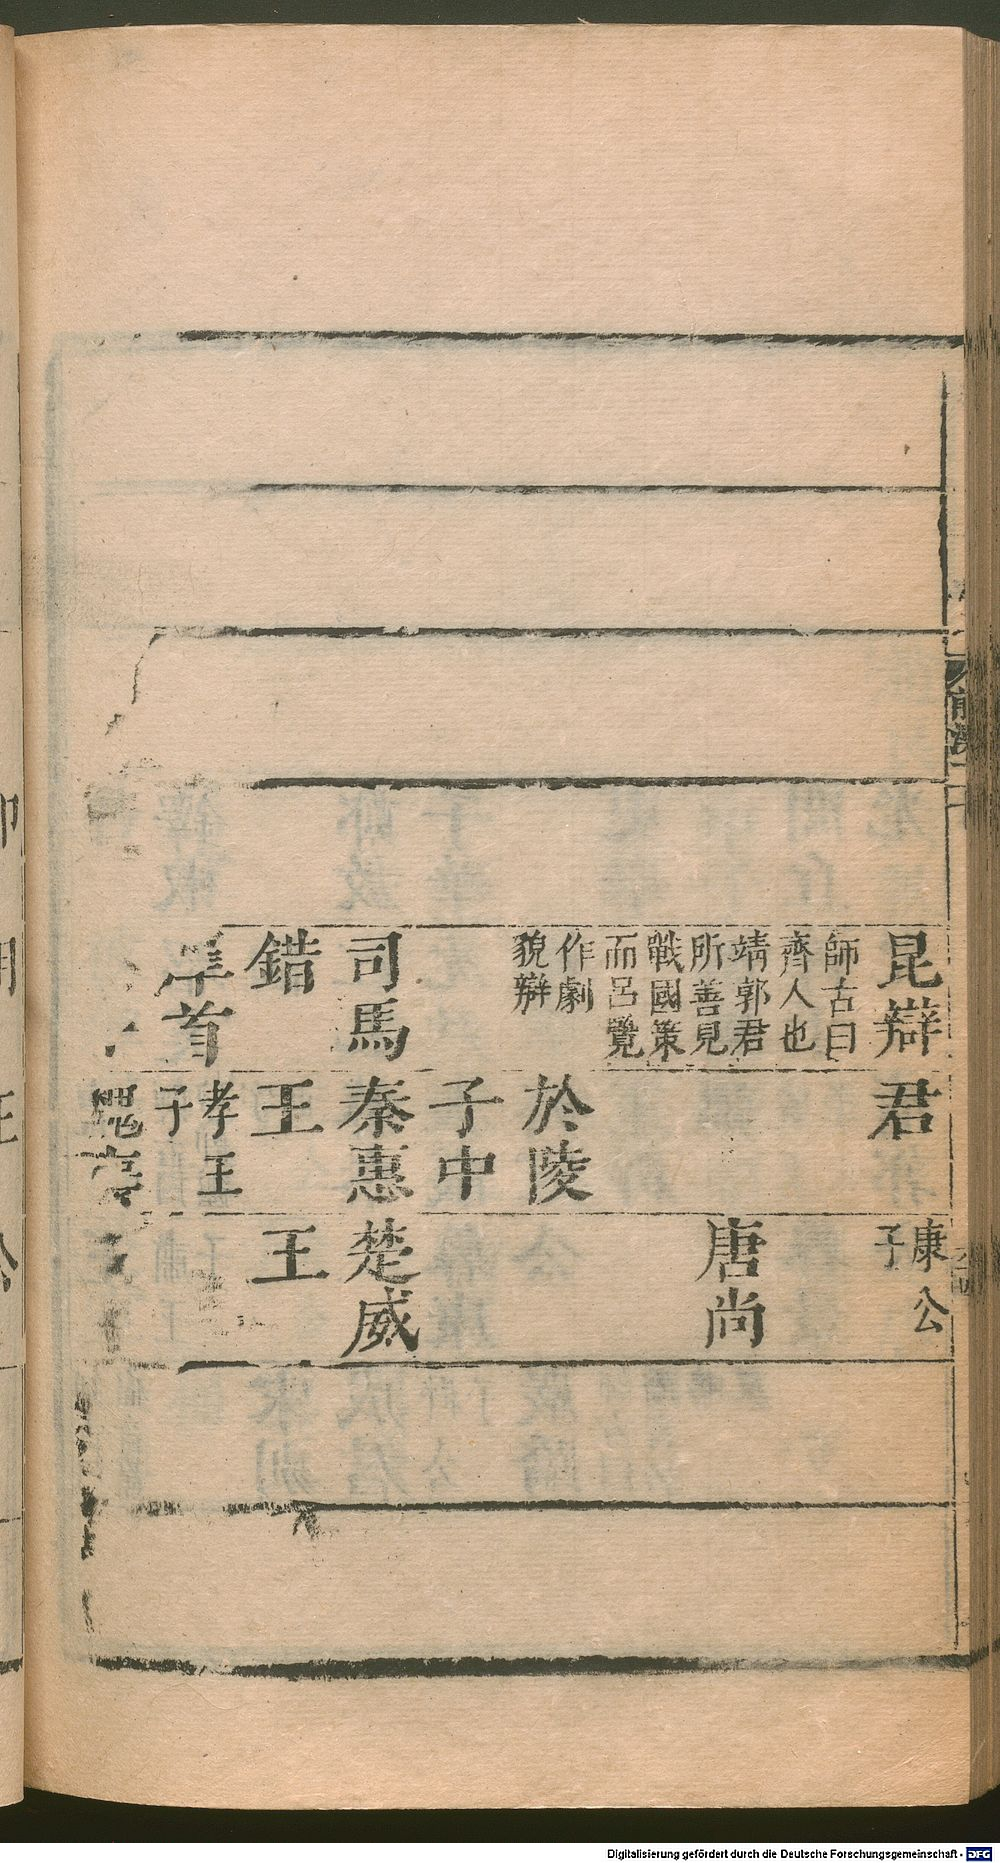 昆辯
師古曰
齊人也
靖郭君
所善見
戰國策
而呂覽
作劇
貌辯
司馬
錯
君
於陵
子中
秦惠
王
孝王
子
康公
子
唐尚
楚威
王
Digitalisierung gefördert durch die Deutsche Forschungsgemeinschaft - DFG